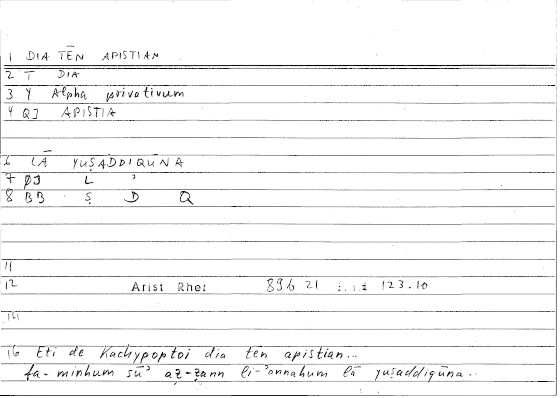 1 DIA TĒN APISTIAN
2 T DIA
3 Y Alpha privativum
4 QJ APISTIA
6 LĀ YUṢADDIQŪNA
7 ØJ L ʾ
8 BB Ṣ D Q
11
12 Arist Rhet 89b 21 123.10
14
16 Eti de Kachypoptoi dia tēn apistian...
fa-minhum sūʾ aẓ-ẓann li-ʾannahum lā yuṣaddiqūna..